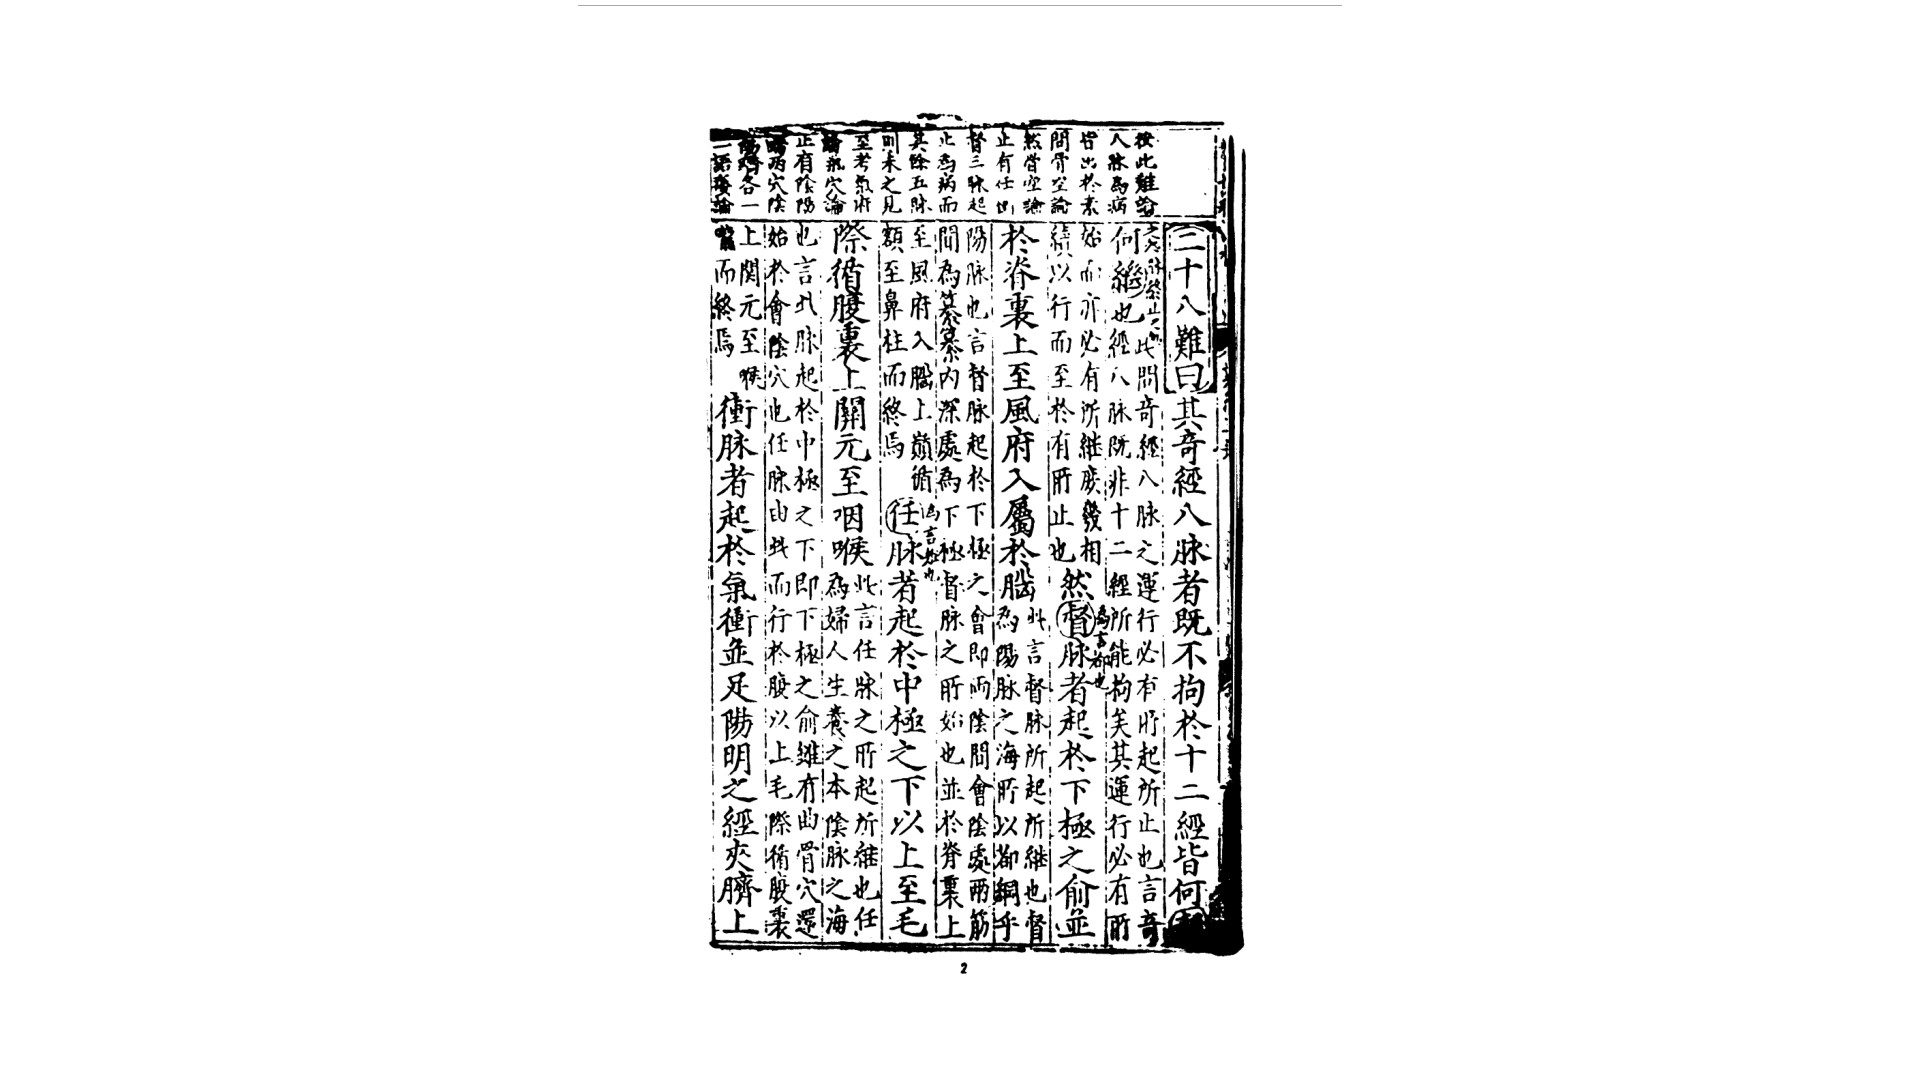 按此難論
八脉為病
皆出於素
問骨空論
然骨空論
止有任
督三脉起
止為病而
其餘五脉
則未之見
至考氣府
論氣穴論
止有陰陽
两穴陰
各一
一語
二十八難曰其奇經八脉者既不拘於十二經皆何
何繼也
此問奇經八脉之運行必有所起所止也言奇
經八脉既非十二經所能拘矣其運行必有所
始而亦必有所継庶幾相
續以行而至於有所止也
然督脉者起於下極之俞並
為言都也
於脊裏上至風府入屬於腦
此言督脉所起所継也督
為陽脉之海所以都綱乎
陽脉也言督脉起於下極之會即两陰間會陰處两筋
間為篡篡内深處為下極督脉之所始也並於脊裏上
至風府入腦上巔循
額至鼻柱而終焉
任脉者起於中極之下以上至毛
際循腹裏上關元至咽喉
此言任脉之所起所継也任
為婦人生養之本陰脉之海
也言此脉起於中極之下即下極之俞雖有曲骨穴還
始於會陰穴也任脉由此而行於腹以上毛際循腹裏
上関元至喉
而終焉
衝脉者起於氣衝並足陽明之經夾臍上
2